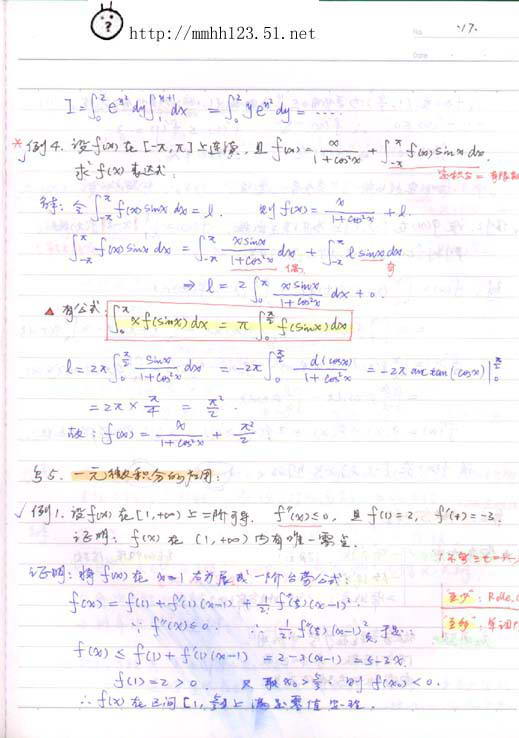 http://mmhh123.51.net
No. 17.
Date
I = ∫₀² e^{y²} dy ∫₁^{y+1} dx = ∫₀² y e^{y²} dy = ……
* 例4. 设 f(x) 在 [-π, π] 上连续, 且 f(x) = x/(1+cos²x) + ∫_{-π}^{π} f(x) sinx dx.
求 f(x) 表达式:
解: 令 ∫_{-π}^{π} f(x) sinx dx = l. 则 f(x) = x/(1+cos²x) + l.
∫_{-π}^{π} f(x) sinx dx = ∫_{-π}^{π} x sinx/(1+cos²x) dx + ∫_{-π}^{π} l sinx dx
偶 奇
⇒ l = 2∫₀^π x sinx/(1+cos²x) dx + 0.
▲ 有公式: ∫₀^π x f(sinx) dx = π ∫₀^{π/2} f(sinx) dx
l = 2π ∫₀^{π/2} sinx/(1+cos²x) dx = -2π ∫₀^{π/2} d(cosx)/(1+cos²x) = -2π arctan(cosx)|₀^{π/2}
= 2π × π/4 = π²/2.
故: f(x) = x/(1+cos²x) + π²/2
§5. 一元微积分的应用:
√ 例1. 设 f(x) 在 [1, +∞) 上二阶可导. f''(x) ≤ 0, 且 f(1) = 2, f'(1) = -3.
证明: f(x) 在 (1, +∞) 内有唯一零点.
证明: 将 f(x) 在 x=1 处展成一阶台劳公式:
f(x) = f(1) + f'(1)(x-1) + 1/2! f''(ξ)(x-1)².
∵ f''(x) ≤ 0. ∴ 1/2! f''(ξ)(x-1)² 于是:
f(x) ≤ f(1) + f'(1)(x-1) = 2-3(x-1) = 5-3x.
f(1) = 2 > 0. 又 取 x₀ > 5/3. 则 f(x₀) < 0.
∴ f(x) 在区间 [1, 上满足零值定理.
"至少": Rolle